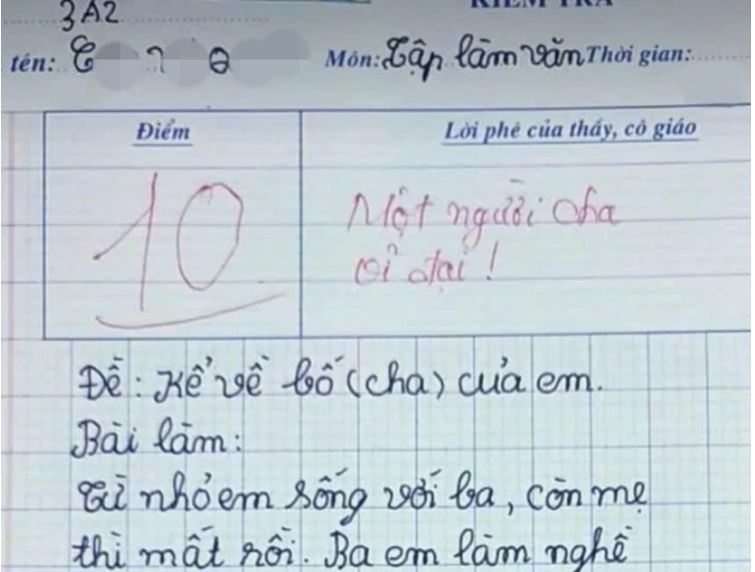 3A2
KIỂM TRA
tên:
Môn: Tập làm văn Thời gian:
Điểm
Lời phê của thầy, cô giáo
10
Một người cha
vĩ đại!
Đề: Kể về bố (cha) của em.
Bài làm:
Từ nhỏ em sống với ba, còn mẹ
thì mất rồi. Ba em làm nghề